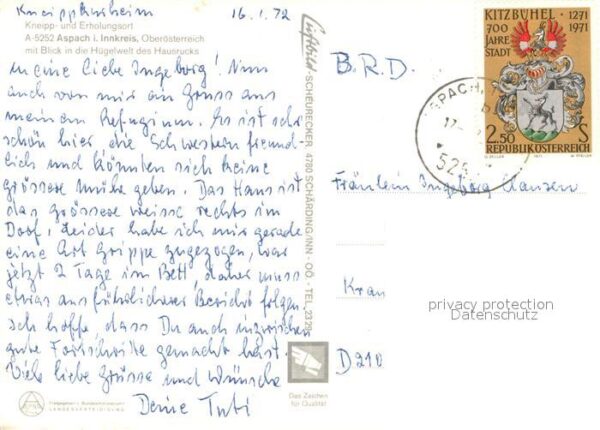 Kneippkurheim 16.1.72
Kneipp- und Erholungsort
A-5252 Aspach i. Innkreis, Oberösterreich
mit Blick in die Hügelwelt des Hausrucks
Meine liebe Ingeborg! Nun
auch von mir ein Gruss aus
meinem Refugium. Es ist sehr
schön hier, die Schwestern freund-
lich und könnten sich keine
grössere Mühe geben. Das Haus ist
das grössere weisse rechts im
Dorf, leider habe ich mir gerade
eine Art Grippe zugezogen, war
jetzt 2 Tage im Bett, daher muss
etwas ausführlicherer Bericht folgen.
Ich hoffe, dass Du auch inzwischen
gute Fortschritte gemacht hast.
Viele liebe Grüsse und Wünsche
Deine
Luftbild SCHEURECKER 4780 SCHÄRDING/INN - OÖ. - TEL. 23 29
Das Zeichen
für Qualität
B.R.D.
Fräulein Ingeborg Clausen
D 210
privacy protection
Datenschutz
KITZBÜHEL · 1271
700 1971
JAHRE
STADT
2.50 S
REPUBLIK ÖSTERREICH
1971
ASPACH
525